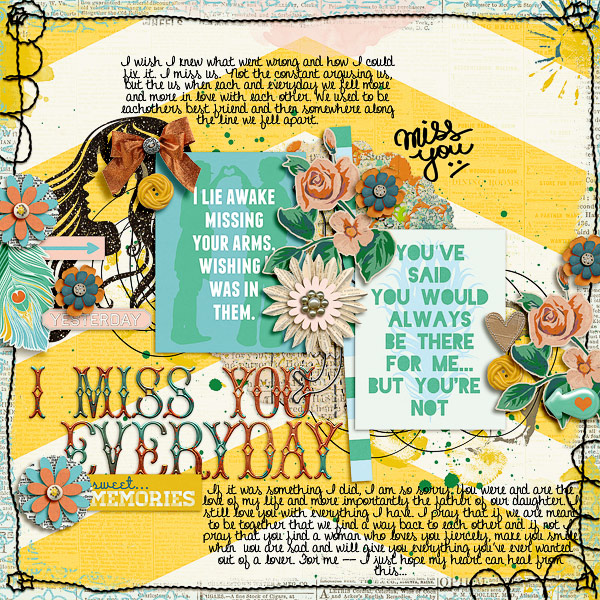 I wish I knew what went wrong and how I could
fix it. I miss us. Not the constant arguing us,
but the us when each and everyday we fell more
and more in love with each other. We used to be
eachothers best friend and then somewhere along
the line we fell apart.
miss
you
I LIE AWAKE
MISSING
YOUR ARMS,
WISHING I
WAS IN
THEM.
YOU'VE
SAID
YOU WOULD
ALWAYS
BE THERE
FOR ME...
BUT YOU'RE
NOT
YESTERDAY
I MISS YOU
EVERYDAY
sweet...
MEMORIES
If it was something I did, I am so sorry. You were and are the
love of my life and more importantly the father of our daughter. I
still love you with everything I have. I pray that if we are meant
to be together that we find a way back to each other and if not I
pray that you find a woman who loves you fiercely, make you smile
when you are sad and will give you everything you've ever wanted
out of a lover. For me -- I just hope my heart can heal from
this...